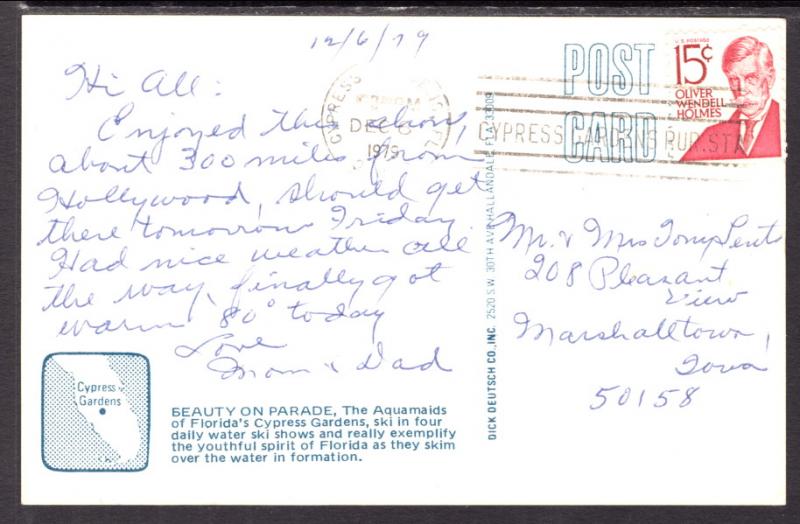 12/6/79
Hi All:
Enjoyed this show,
about 300 miles from
Hollywood, should get
there tomorrow Friday
Had nice weather all
the way, finally got
warm 80° today
Love
Mom & Dad
Cypress
Gardens
BEAUTY ON PARADE, The Aquamaids
of Florida's Cypress Gardens, ski in four
daily water ski shows and really exemplify
the youthful spirit of Florida as they skim
over the water in formation.
DICK DEUTSCH CO., INC. 2520 S.W. 30TH AVE. HALLANDALE, FLA. 33009
POST
CARD
CYPRESS
PM
DEC 6
1979
CYPRESS GARDENS RUR. STA
U.S. POSTAGE
15¢
OLIVER
WENDELL
HOLMES
Mr. & Mrs Tony
208 Pleasant
View
Marshalltown,
Iowa
50158